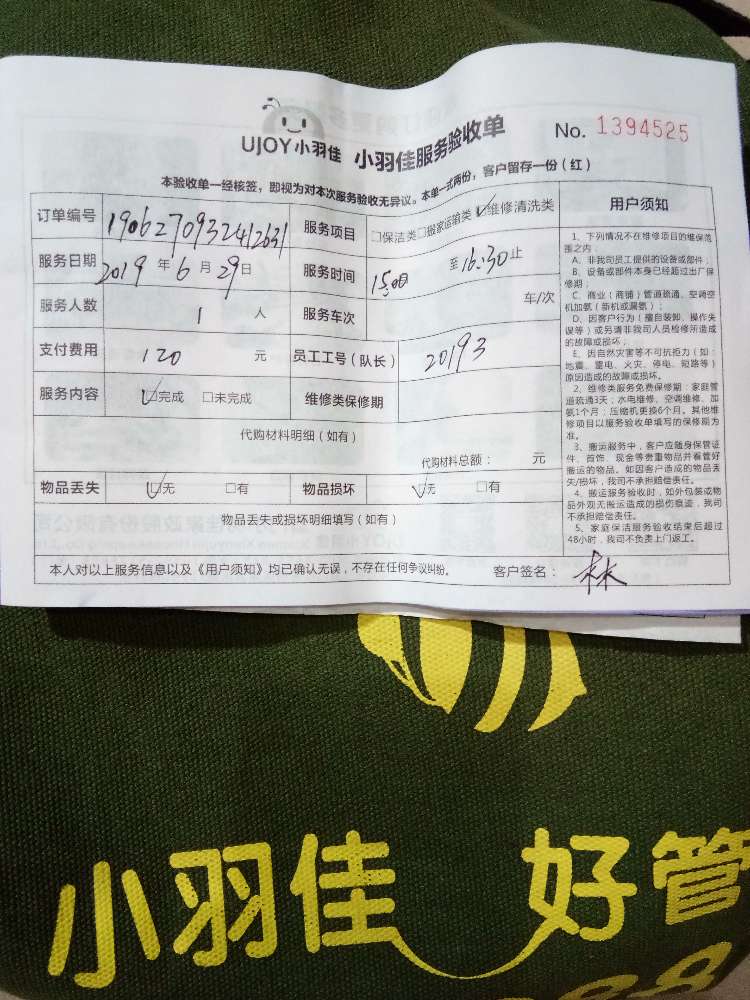 UJOY小羽佳 小羽佳服务验收单 No. 1394525
本验收单一经核签，即视为对本次服务验收无异议。本单一式两份，客户留存一份（红）
订单编号 1906270932412631 服务项目 □保洁类□搬家运输类☑维修清洗类
服务日期 2019年6月29日 服务时间 15:00 至 16:30 止
服务人数 1 人 服务车次 车/次
支付费用 120 元 员工工号（队长） 20193
服务内容 ☑完成 □未完成 维修类保修期
代购材料明细（如有）
代购材料总额： 元
物品丢失 ☑无 □有 物品损坏 ☑无 □有
物品丢失或损坏明细填写（如有）
本人对以上服务信息以及《用户须知》均已确认无误，不存在任何争议纠纷。 客户签名： 林
用户须知
1、下列情况不在维修项目的维保范
围之内：
A、非我司员工提供的设备或部件；
B、设备或部件本身已经超过出厂保
修期；
C、商业（商铺）管道疏通、空调空
机加氨（新机或漏氨）；
D、因客户行为（擅自装卸、操作失
误等）或另请非我司人员检修所造成
的故障或损坏；
E、因自然灾害等不可抗拒力（如：
地震、雷电、火灾、停电、短路等）
原因造成的故障或损坏。
2、维修类服务免费保修期：家庭管
道疏通3天；水电维修、空调维修、加
氨1个月；压缩机更换6个月。其他维
修项目以服务验收单填写的保修期为
准。
3、搬运服务中，客户应随身保管证
件、首饰、现金等贵重物品并看管好
搬运的物品。如因客户造成的物品丢
失/损坏，我司不承担赔偿责任。
4、搬运服务验收时，如外包装或物
品外观无搬运造成的损伤痕迹，我司
不承担赔偿责任。
5、家庭保洁服务验收结束后超过
48小时，我司不负责上门返工。
小羽佳 好管
88